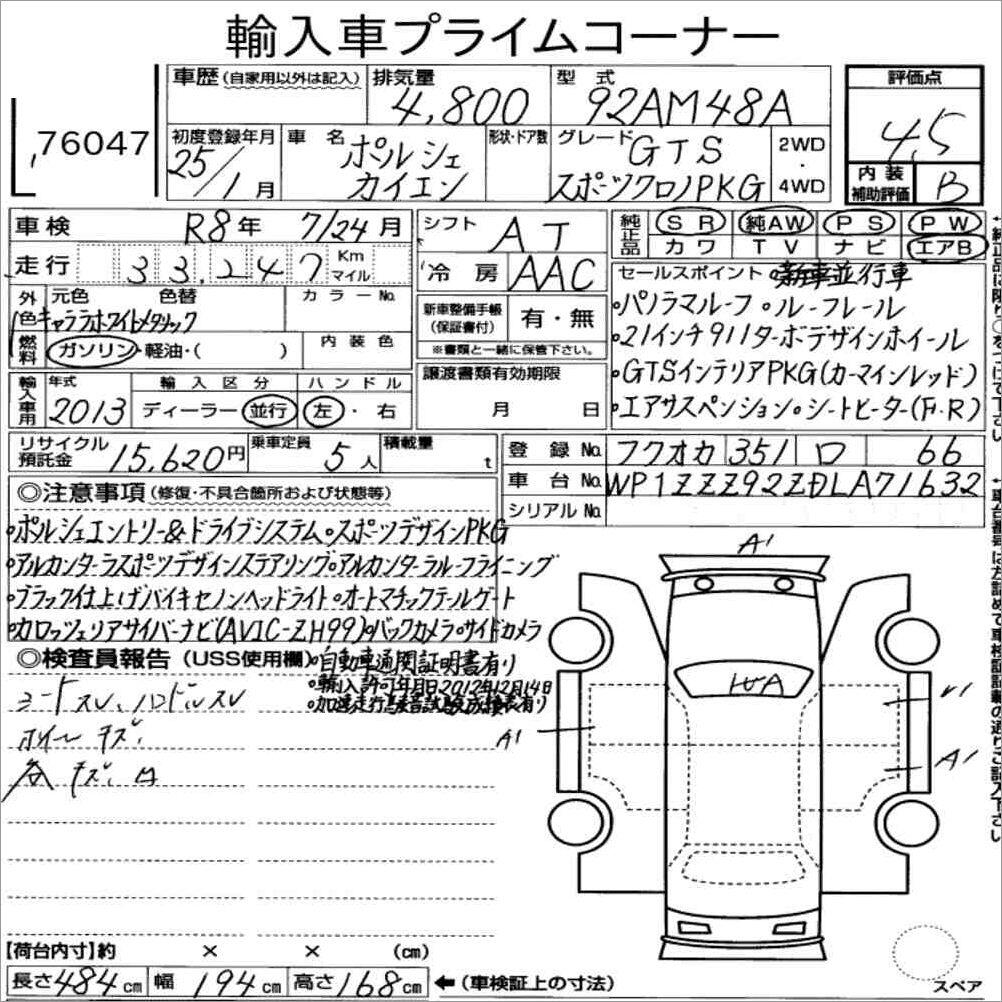 輸入車プライムコーナー
76047
車歴(自家用以外は記入) 排気量 4,800 型式 92AM48A 評価点 4.5
初度登録年月 25/1月 車名 ポルシェ カイエン 形状・ドア数 グレード GTS スポーツクロノPKG 2WD・4WD 内装補助評価 B
車検 R8年 7/24月 シフト AT 純正品 SR 純AW PS PW
カワ TV ナビ エアB
走行 33,247 Km マイル 冷房 AAC
セールスポイント 新車並行車
外色 元色 色替 カラーNo.
キャララホワイトメタリック
新車整備手帳(保証書付) 有・無
※書類と一緒に保管下さい。
・パノラマルーフ・ルーフレール
・21インチ911ターボデザインホイール
燃料 ガソリン・軽油・( ) 内装色
譲渡書類有効期限 月 日
・GTSインテリアPKG(カーマインレッド)
・エアサスペンション・シートヒーター(F・R)
輸入車用 年式 2013 輸入区分 ディーラー・並行 ハンドル 左・右
リサイクル預託金 15,620円 乗車定員 5人 積載量 t
登録No. フクオカ 351 ロ 66
車台No. WP1ZZZ92ZDLA71632
シリアルNo.
◎注意事項(修復・不具合箇所および状態等)
・ポルシェエントリー&ドライブシステム・スポーツデザインPKG
・アルカンターラスポーツデザインステアリング・アルカンターラルーフライニング
・ブラック仕上げバイキセノンヘッドライト・オートマチックテールゲート
・カロッツェリアサイバーナビ(AVIC-ZH99)・バックカメラ・サイドカメラ
◎検査員報告(USS使用欄)
・自動車通関証明書有り
・輸入許可年月日2012年12月14日
・加速走行騒音試験成績表有り
シートスレ、ハンドルスレ
ホイールキズ
キズ、凹
A1
A1
A1
【荷台内寸】約 × × (cm)
長さ484cm 幅194cm 高さ168cm ←(車検証上の寸法)
スペア